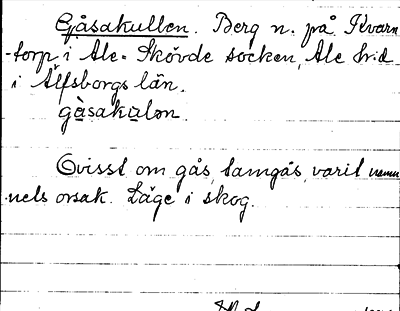 Gåsakullen. Berg n. på Kvarn
-torp i Ale-Skövde socken, Ale hd
i Älfsborgs län.
gàsakulən.
Ovisst om gås, tamgås, varit namn
nels orsak. Läge i skog.